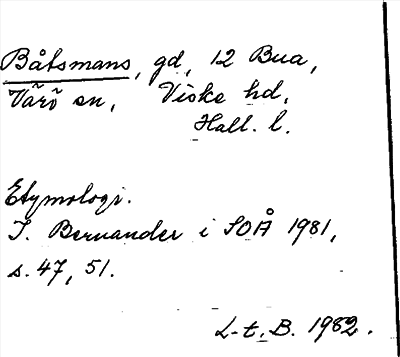 Båtsmans, gd, 12 Bua,
Värö sn, Viske hd,
Hall. l.
Etymologi.
I. Bernander i SOÅ 1981,
s. 47, 51.
L-t. B. 1982.